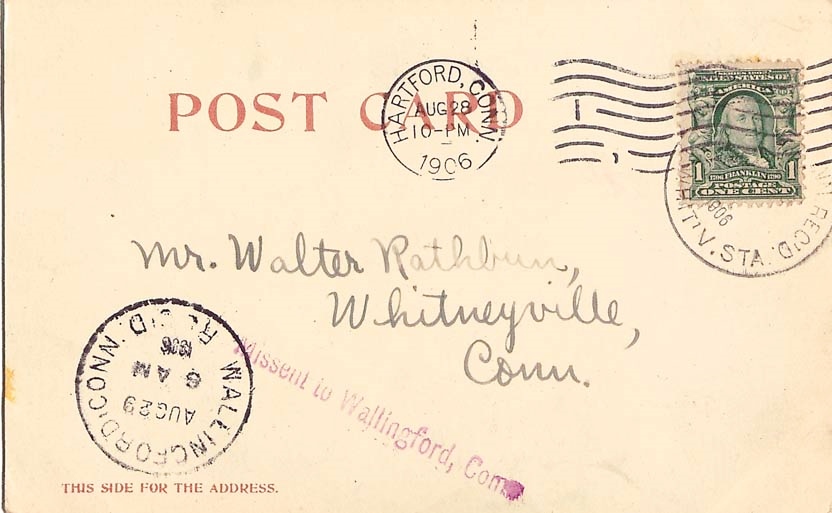 POST CARD
HARTFORD, CONN.
AUG 28
10-PM
1906
SERIES 1902
UNITED STATES OF
AMERICA
1706 FRANKLIN 1790
1 1
POSTAGE
ONE CENT
REC'D.
WHIT'V. STA.
1906
Mr. Walter Rathbun,
Whitneyville,
Conn.
WALLINGFORD, CONN. REC'D.
AUG 29
6 AM
1906
Missent to Wallingford, Conn
THIS SIDE FOR THE ADDRESS.